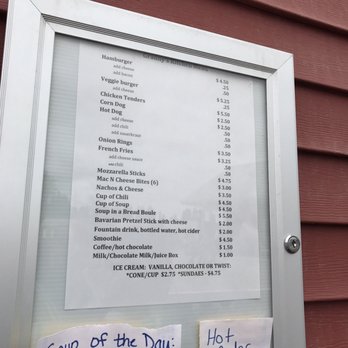 Hamburger $4.50
add cheese .25
add bacon .50
Veggie burger $5.25
add cheese .25
Chicken Tenders $5.50
Corn Dog $2.50
Hot Dog $2.50
add cheese .50
add chili .50
add sauerkraut .50
Onion Rings $3.50
French Fries $3.25
add cheese sauce .50
add chili .50
Mozzarella Sticks $4.75
Mac N Cheese Bites (6) $3.00
Nachos & Cheese $3.50
Cup of Chili $4.50
Cup of Soup $4.50
Soup in a Bread Boule $5.50
Bavarian Pretzel Stick with cheese $2.00
Fountain drink, bottled water, hot cider $2.00
Smoothie $4.50
Coffee/hot chocolate $1.50
Milk/Chocolate Milk/Juice Box $1.00
ICE CREAM: VANILLA, CHOCOLATE OR TWIST:
*CONE/CUP $2.75 *SUNDAES - $4.75
Soup of the Day:
Hot